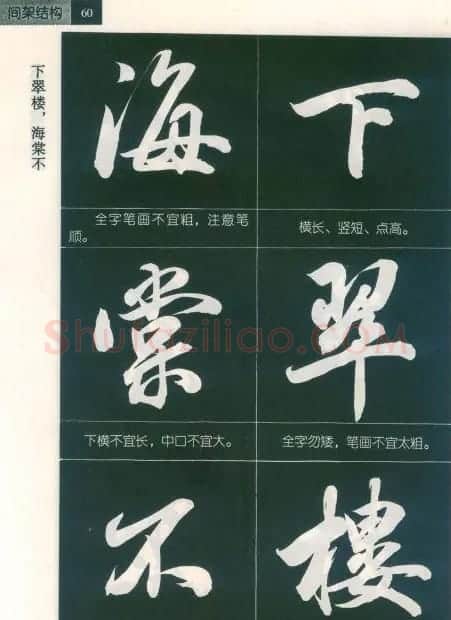 间架结构 60
下翠楼，海棠不
下
横长、竖短、点高。
翠
全字勿矮，笔画不宜太粗。
樓
海
全字笔画不宜粗，注意笔
顺。
棠
下横不宜长，中口不宜大。
不
Shufaziliao.COM